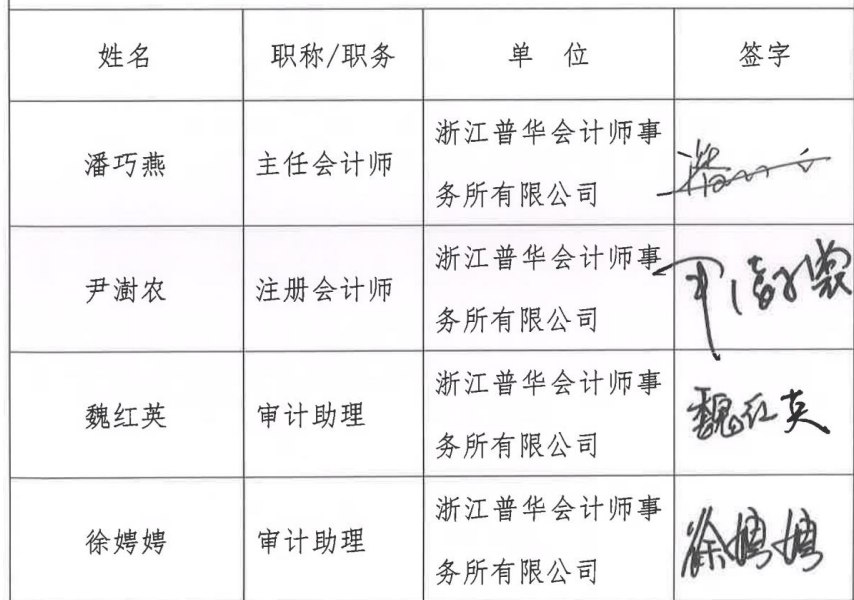 姓名 职称/职务 单 位 签字
潘巧燕 主任会计师 浙江普华会计师事
务所有限公司
尹澍农 注册会计师 浙江普华会计师事
务所有限公司
魏红英 审计助理 浙江普华会计师事
务所有限公司 魏红英
徐娉娉 审计助理 浙江普华会计师事
务所有限公司 徐娉娉